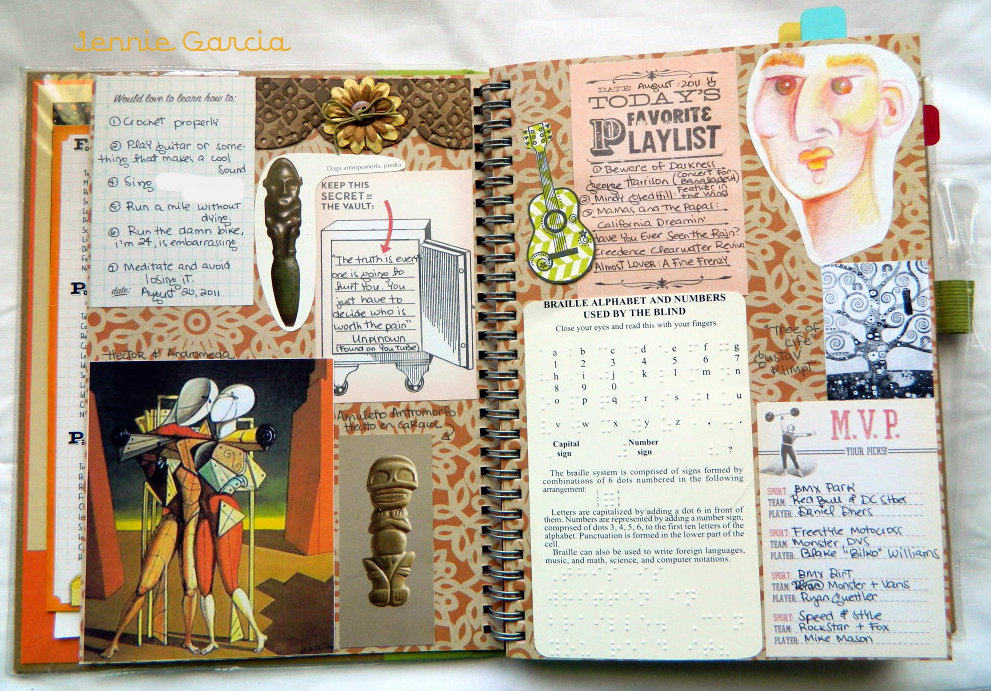 Jennie Garcia
Would love to learn how to:
① Crochet properly
② Play guitar or some-
thing that makes a cool
sound
④ Sing
⑤ Run a mile without
dying.
⑥ Run the damn bike,
i'm 24, is embarrasing
⑦ Meditate and avoid
losing it.
date: August 20, 2011
Daga antropomorfa, piedra
KEEP THIS
SECRET IN
THE VAULT:
"The truth is every
one is going to
hurt you. You
just have to
decide who is
worth the pain"
Unknown
(Found on YouTube)
Hector & Andromeda
Amuleto Antromorfo
Hecho en caraquel
DATE: August, 2011
TODAY'S
FAVORITE
PLAYLIST
① Beware of Darkness
George Harrison (Concert For
Bangladesh)
② Mindy Gledhill: Feather in
the Wind
③ Mamas and the Papas:
California Dreamin'
Have You Ever Seen the Rain?
Creedence Clearwater Reviva
Almost Lover: A Fine Frenzy
BRAILLE ALPHABET AND NUMBERS
USED BY THE BLIND
Close your eyes and read this with your fingers.
a b c d e f g
1 2 3 4 5 6 7
h i j k l m n
8 9 0
o p q r s t u
v w x y z , .
Capital sign Number sign ?
The braille system is comprised of signs formed by
combinations of 6 dots numbered in the following
arrangement:
Letters are capitalized by adding a dot 6 in front of
them. Numbers are represented by adding a number sign,
comprised of dots 3, 4, 5, 6, to the first ten letters of the
alphabet. Punctuation is formed in the lower part of the
cell.
Braille can also be used to write foreign languages,
music, and math, science, and computer notations.
"Tree of
Life"
Gustav
Klimpt
M.V.P.
YOUR PICKS!
SPORT: BMX Park
TEAM: Red Bull & DC Shoes
PLAYER: Daniel Dhers
SPORT: Freestyle Motocross
TEAM: Monster, DVS
PLAYER: Blake "Bilko" Williams
SPORT: BMX Dirt
TEAM: Monster + Vans
PLAYER: Ryan Guettler
SPORT: Speed & Style
TEAM: Rockstar + Fox
PLAYER: Mike Mason